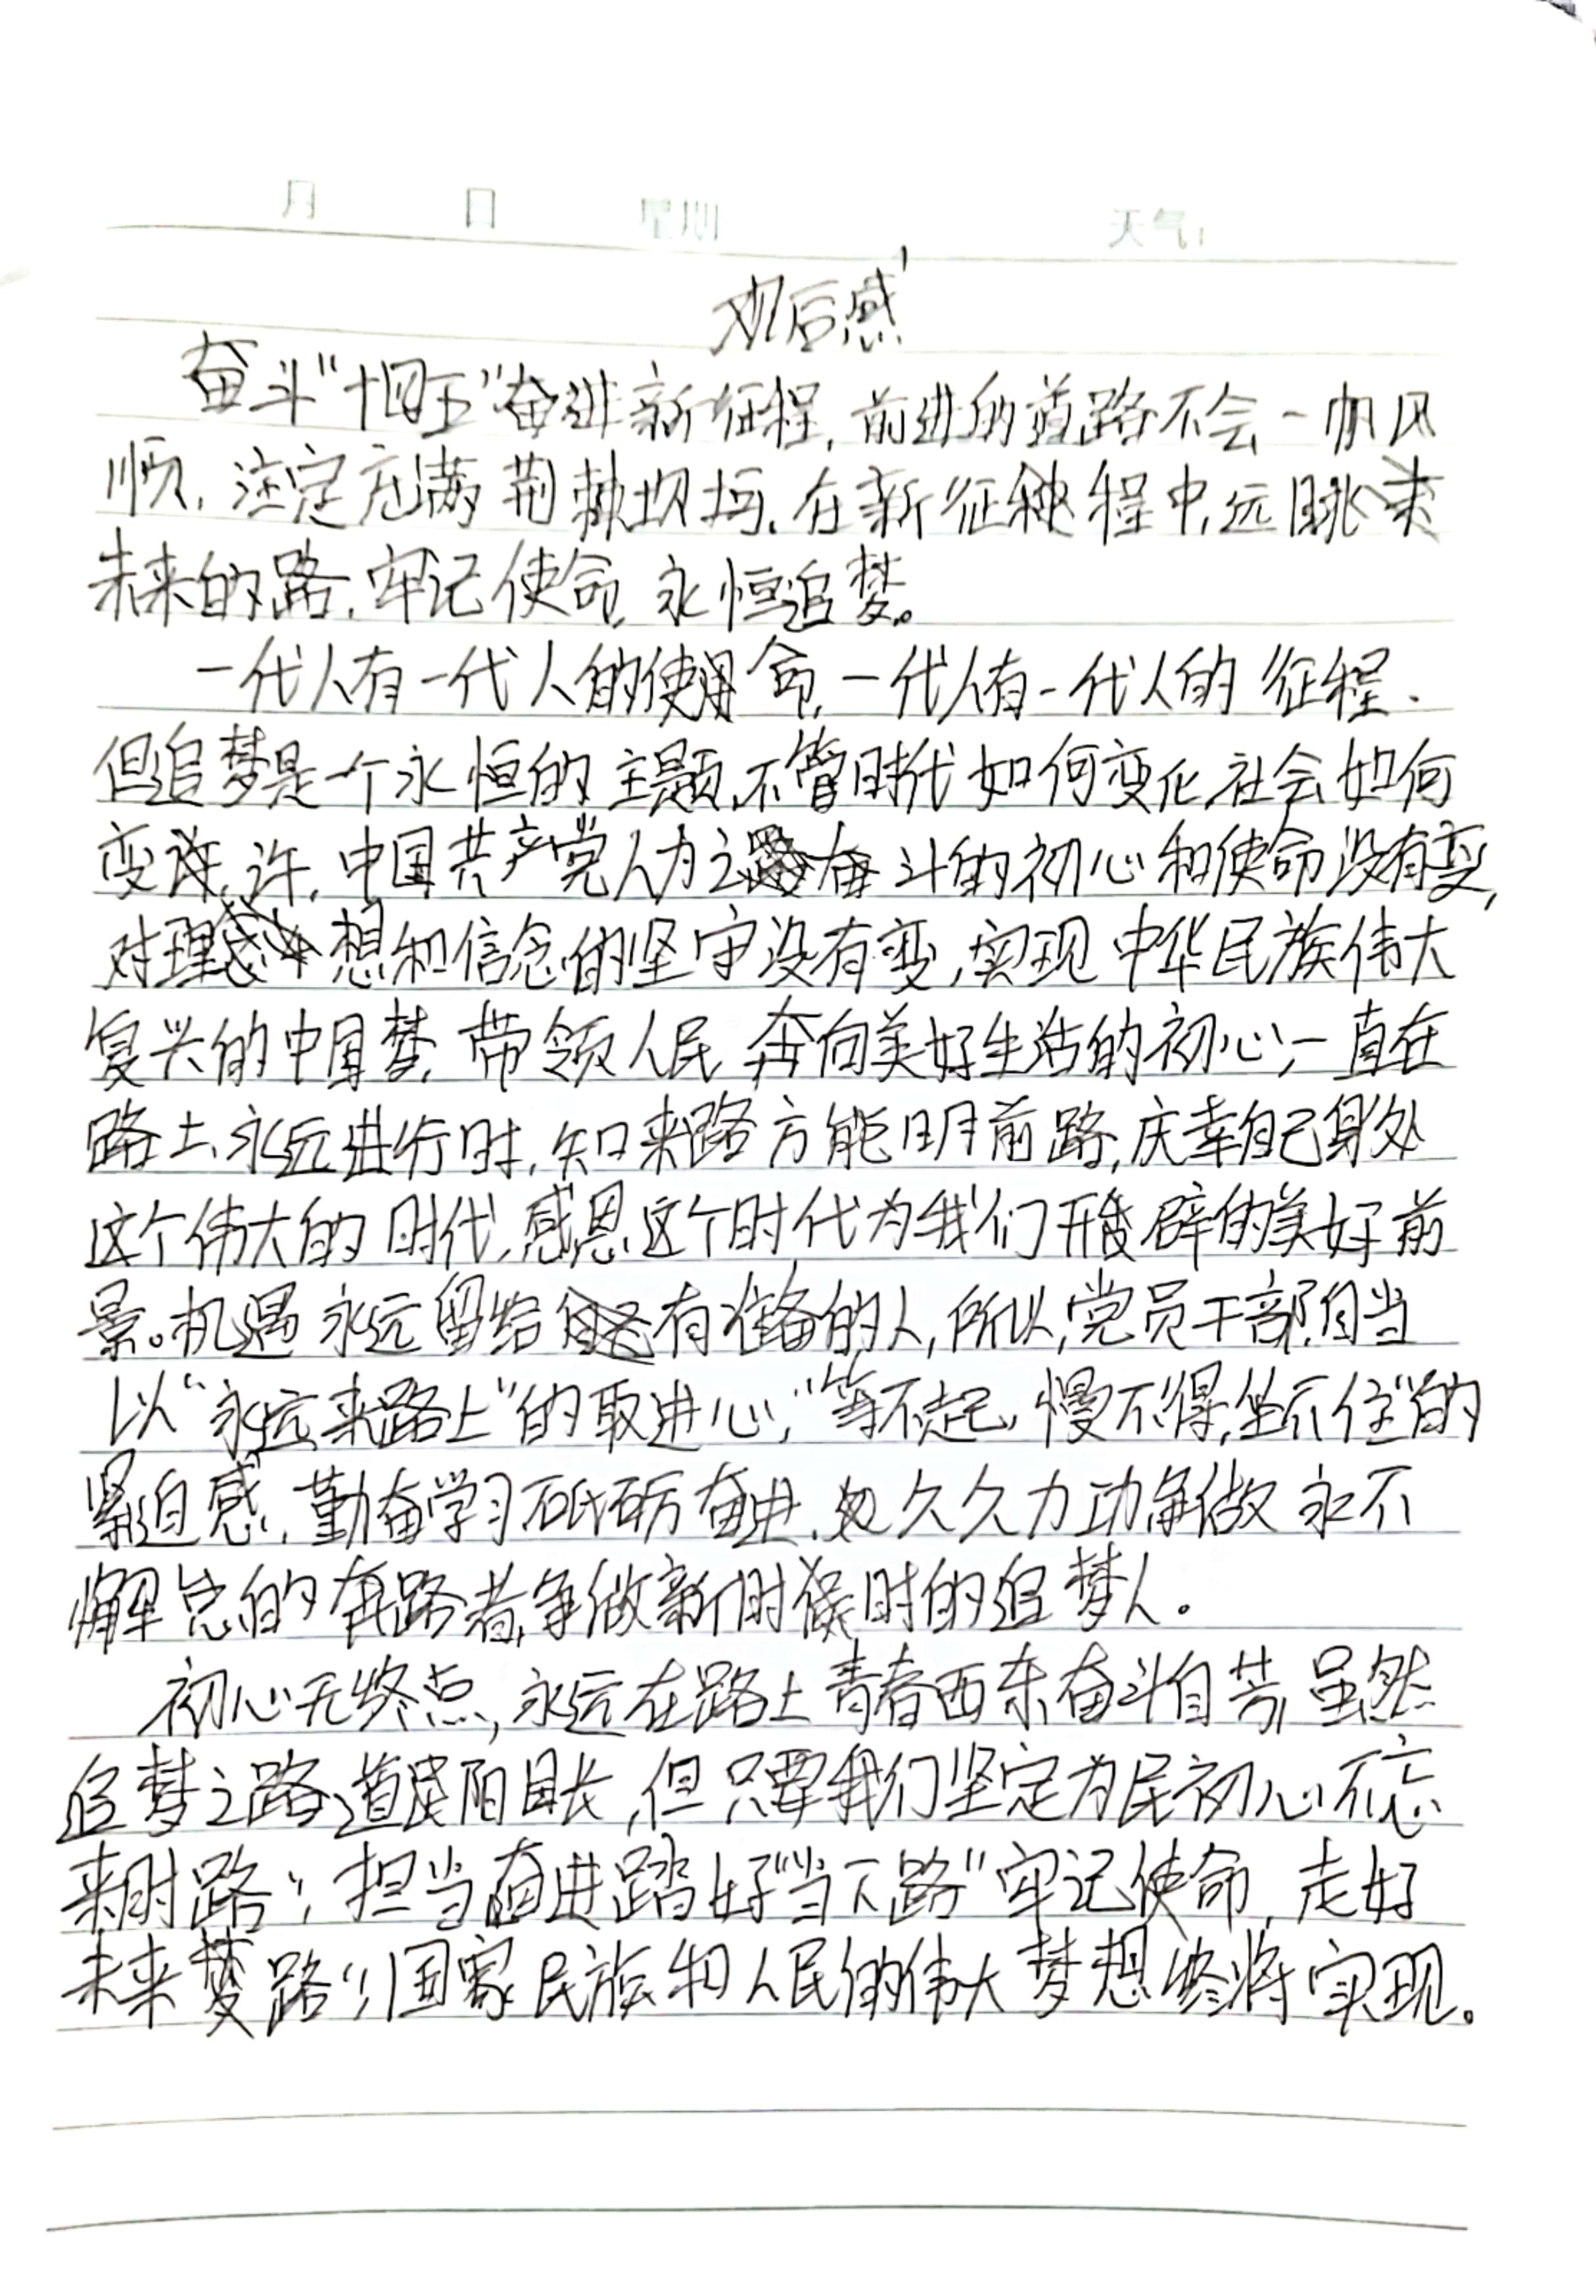 月 日 星期 天气:
观后感
奋斗“十四五”奋进新征程,前进的道路不会一帆风
顺,注定充满荆棘坎坷,在新征程中,远眺
未来的路,牢记使命,永恒追梦。
一代人有一代人的使命,一代人有一代人的征程.
但追梦是一个永恒的主题,不管时代如何变化,社会如何
变许,中国共产党人为之奋斗的初心和使命没有变,
对理想和信念的坚守没有变,实现中华民族伟大
复兴的中国梦,带领人民奔向美好生活的初心,一直在
路上,永远进行时,知来路方能明前路,庆幸自己身处
这个伟大的时代,感恩这个时代为我们开辟的美好前
景。机遇永远留给有准备的人,所以,党员干部,自当
以“永远来路上”的取进心,“等不起,慢不得,坐不住”的
紧迫感,勤奋学习砥砺奋进,久久力功争做永不
懈怠的奔路者,争做新时候时的追梦人。
初心无终点,永远在路上青春西东奋斗自芳,虽然
追梦之路道阻且长,但只要我们坚定为民初心不忘
来时路”;担当奋进踏好“当下路”牢记使命,走好
未来梦路”,国家民族和人民的伟大梦想终将实现。